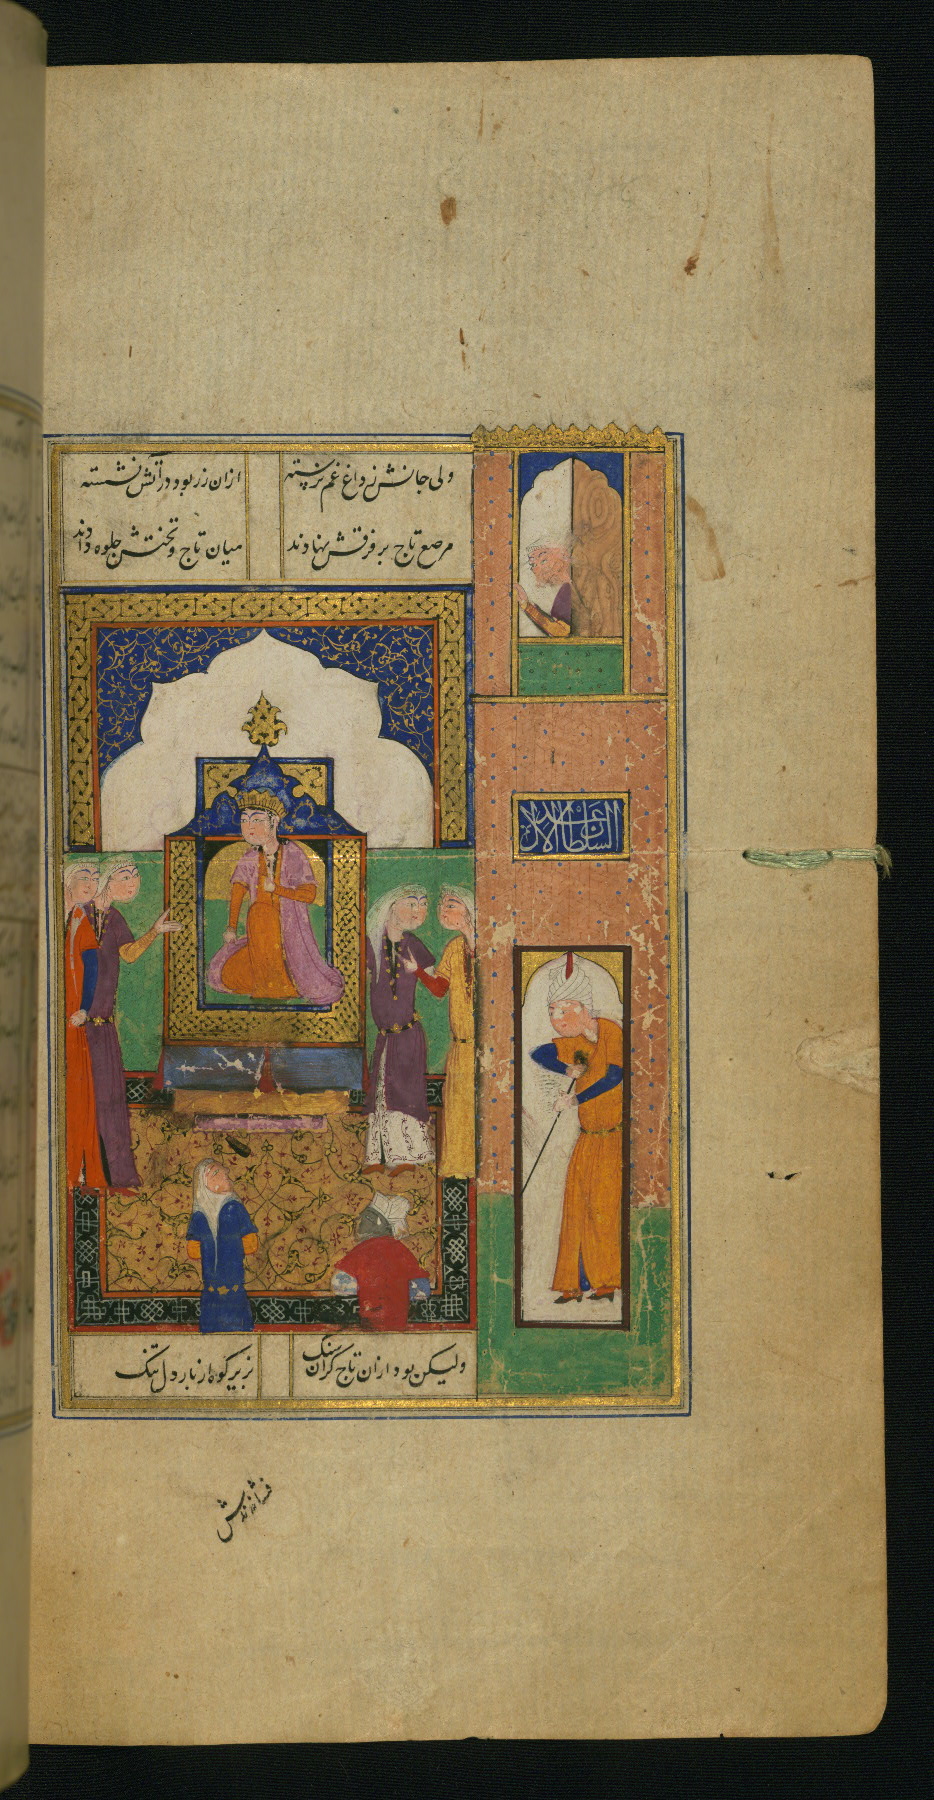 ولی جانش ز داغ غم نرسته ازان زر بود در آتش نشسته
مرصع تاج بر فرقش نهادند میان تاج و تختش جلوه دادند
السلطان العادل
ولیکن بود ازان تاج گران سنگ بزیر کوه از بار دل تنگ
فشاندندش